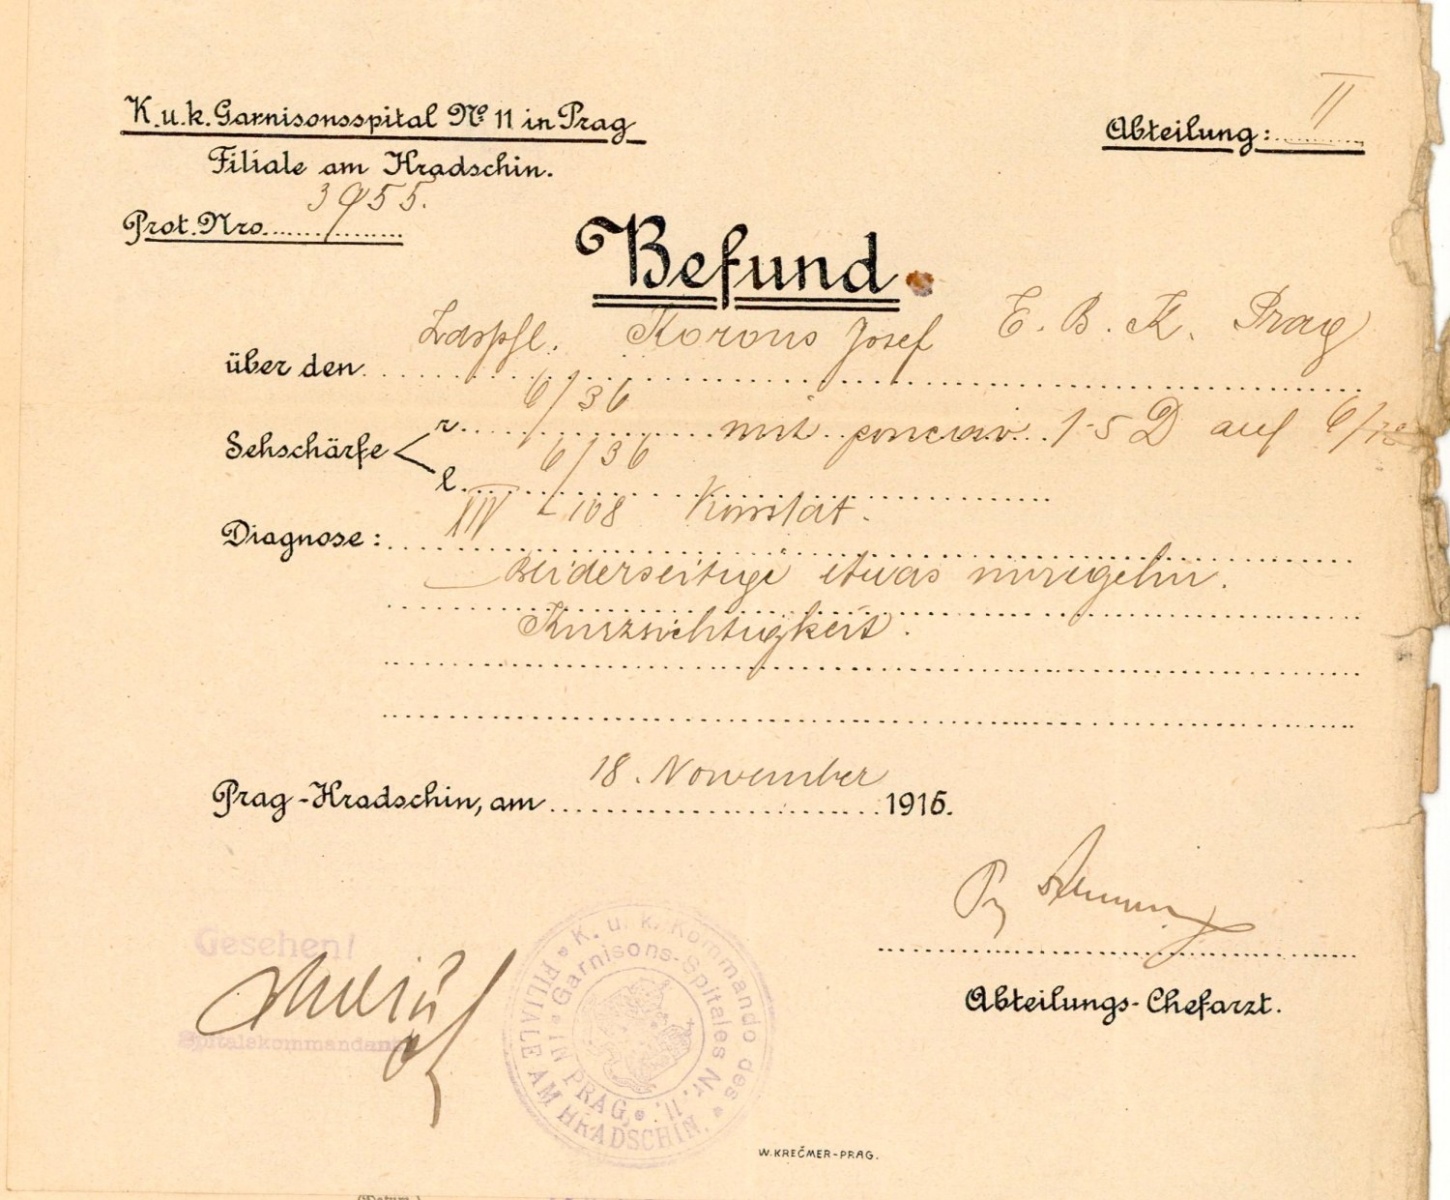 K.u.k. Garnisonsspital No 11 in Prag
Filiale am Hradschin.
Abteilung: II
Prot. Nro. 3955.
Befund.
über den Ldstpfl. Korous Josef E. B. K. Prag
Sehschärfe
r. 6/36 mit concav 1·5 D auf 6/12
l. 6/36
Diagnose: Konstat.
Beiderseitige etwas
Kurzsichtigkeit.
Prag-Hradschin, am 18. November 1916.
Gesehen!
Spitalskommandant
K. u. k. Kommando des
Garnisons-Spitales Nr. 11
IN PRAG,
FILIALE AM HRADSCHIN.
Abteilungs-Chefarzt.
W. KREČMER-PRAG.